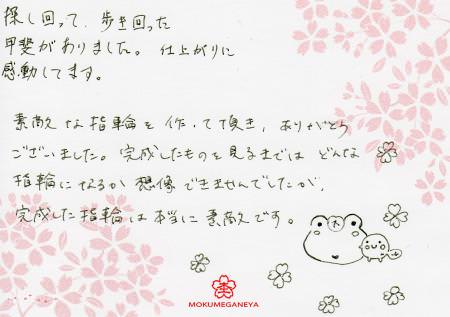 探し回って、歩き回った
甲斐がありました。仕上がりに
感動してます。
素敵な指輪を作って頂き、ありがとう
ございました。完成したものを見るまでは どんな
指輪になるか想像できませんでしたが、
完成した指輪は本当に素敵です。
MOKUMEGANEYA